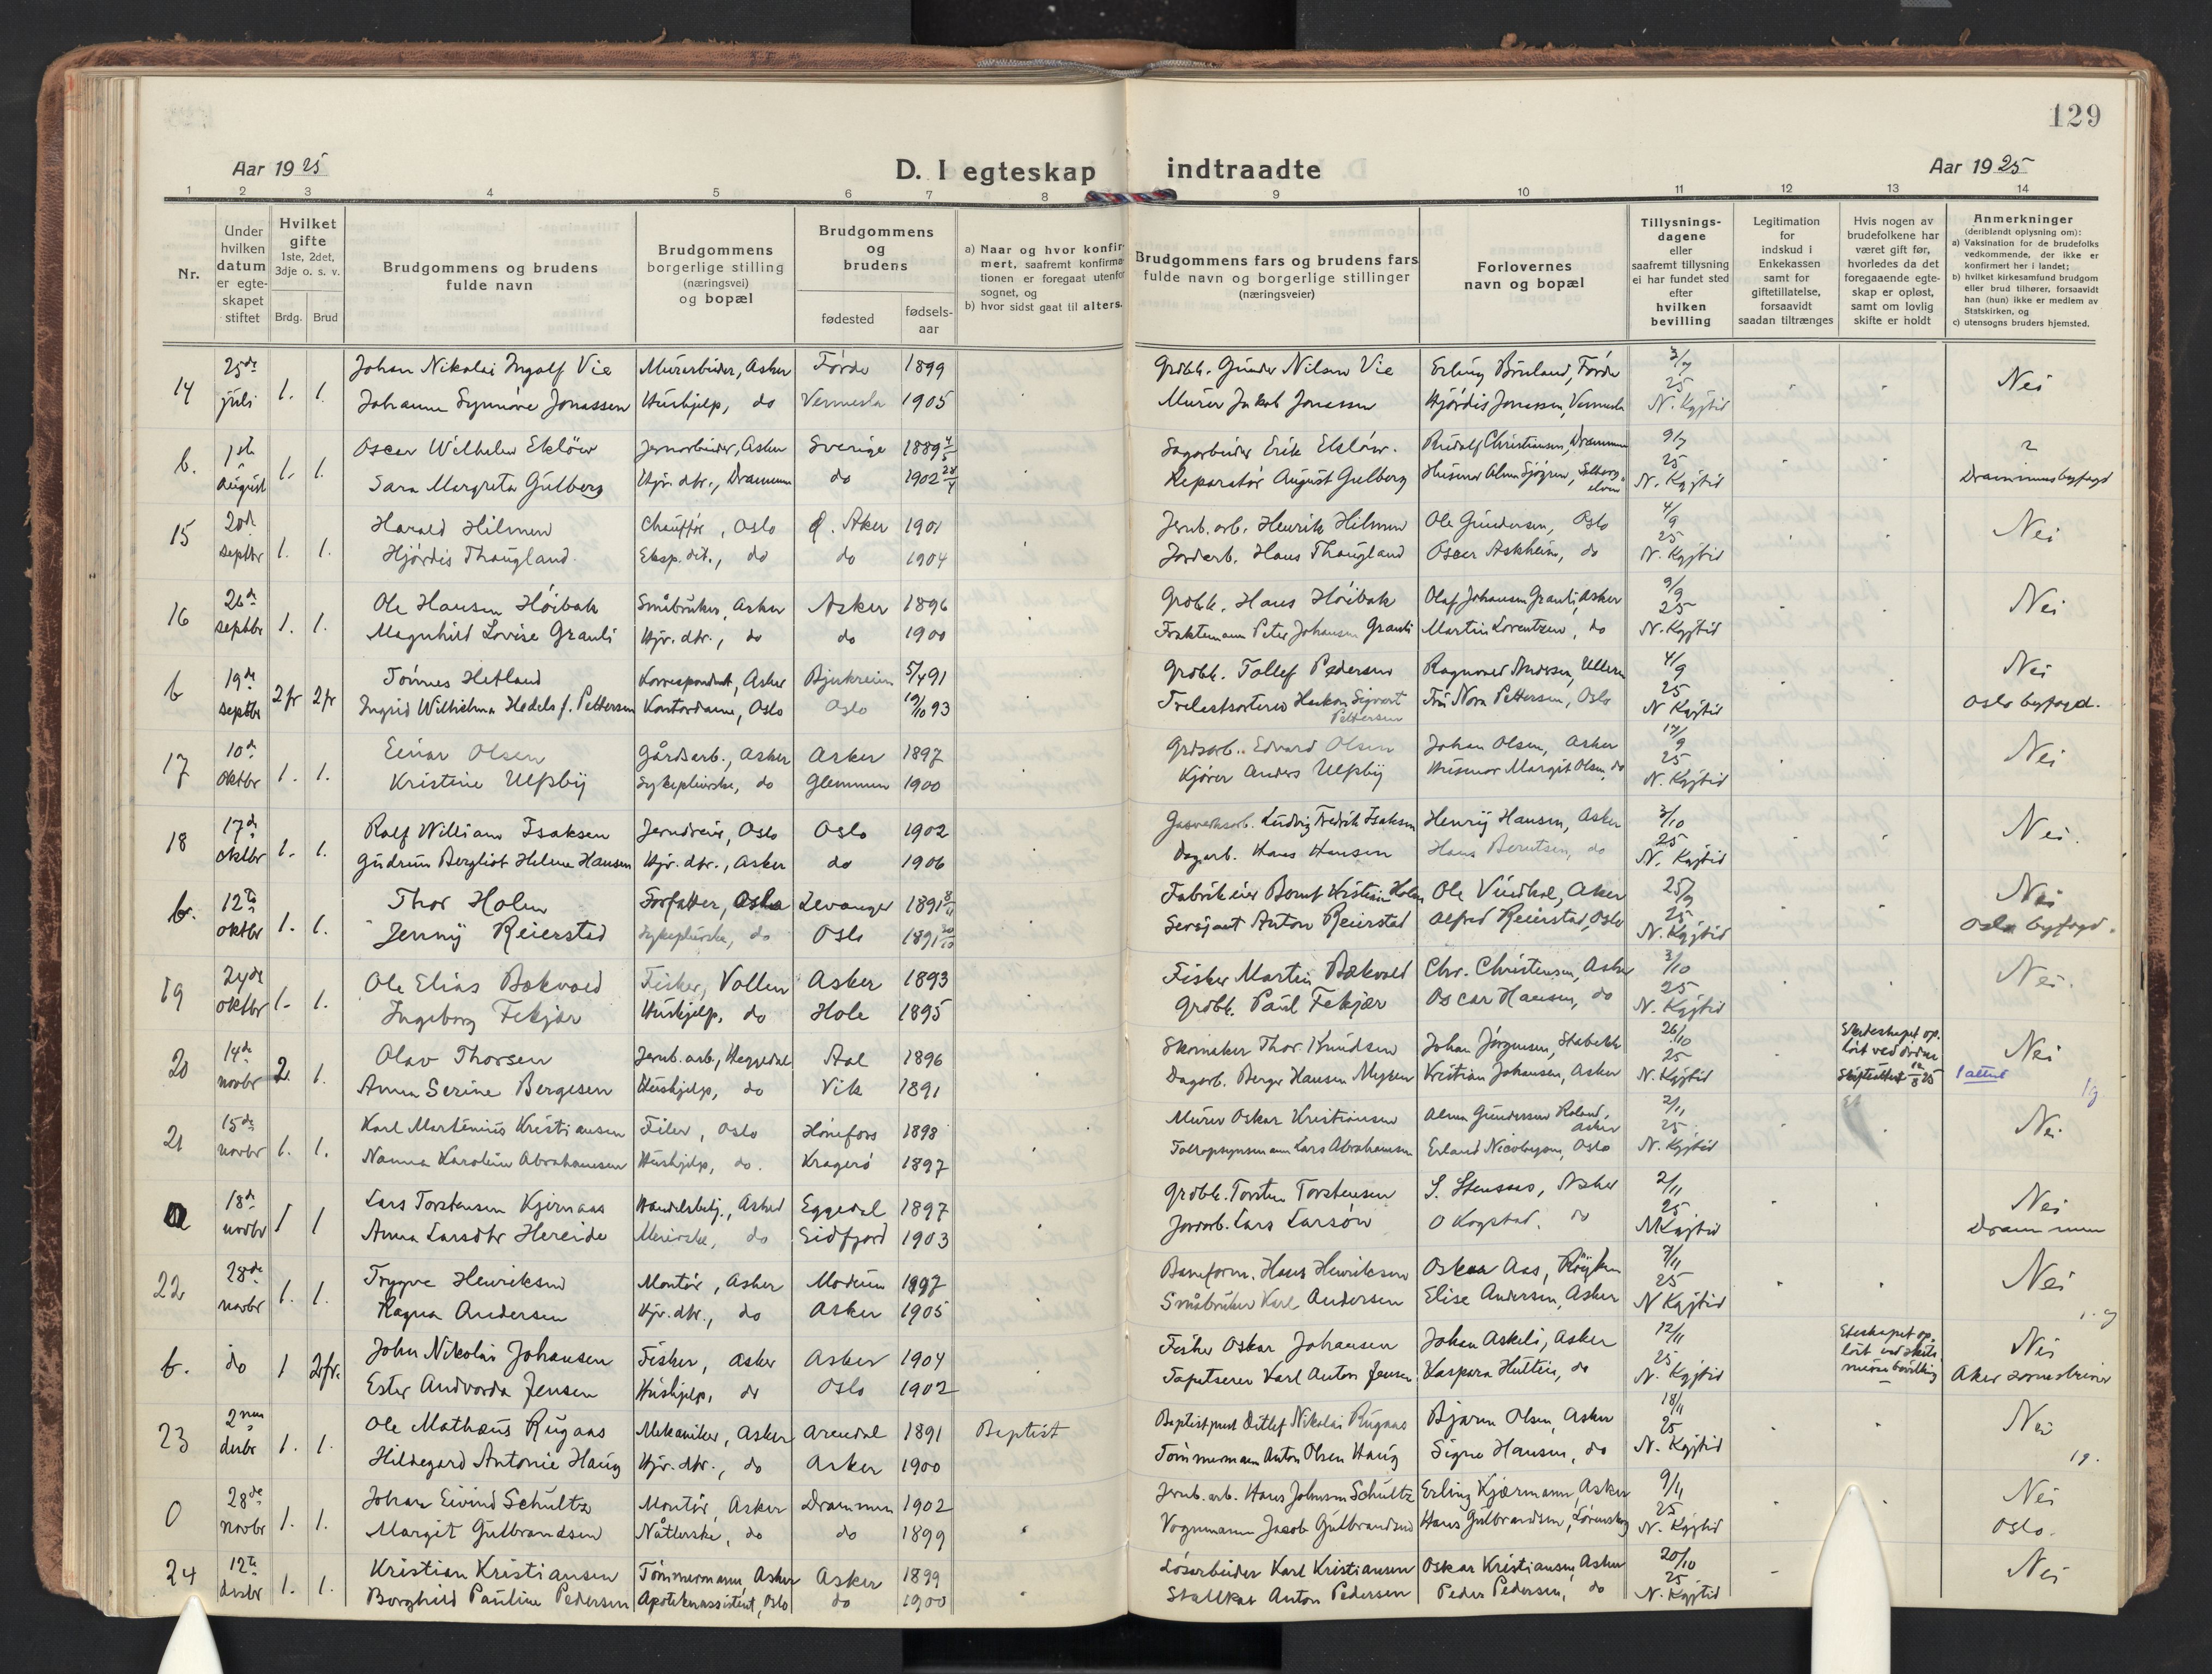 129
Aar 1925
D. I egteskap indtraadte
Aar 1925
1 2 3 4 5 6 7 8 9 10 11 12 13 14
Nr.
Under hvilken datum er egte-skapet stiftet
Hvilket gifte 1ste, 2det, 3dje o. s. v.
Brdg. Brud
Brudgommens og brudens fulde navn
Brudgommens borgerlige stilling (næringsvei) og bopæl
Brudgommens og brudens
fødested
fødsels-aar
a) Naar og hvor konfir-mert, saafremt konfirma-tionen er foregaat utenfor sognet, og
b) hvor sidst gaat til alters.
Brudgommens fars og brudens fars fulde navn og borgerlige stillinger (næringsveier)
Forlovernes navn og bopæl
Tillysnings-dagene eller saafremt tillysning ei har fundet sted efter hvilken bevilling
Legitimation for indskud i Enkekassen samt for giftetillatelse, forsaavidt saadan tiltrænges
Hvis nogen av brudefolkene har været gift før, hvorledes da det foregaaende egte-skap er opløst, samt om lovlig skifte er holdt
Anmerkninger (deriblandt oplysning om):
a) Vaksination for de brudefolks vedkommende, der ikke er konfirmert her i landet;
b) hvilket kirkesamfund brudgom eller brud tilhører, forsaavidt han (hun) ikke er medlem av Statskirken, og
c) utensogns bruders hjemsted.
14 25de juli 1. 1. Johan Nikolai Ingolf Vie Murerbeider, Asker Førde 1899 Grdbr. Gunder Nilsen Vie Erling Bruland, Førde 3/7 25 Nei
Johanne Synnøve Jonassen Hushjelp, do Vennesla 1905 Murer Jakob Jonassen Hjørdis Jonassen, Vennesla N. Kgjtid
b. 1ste august 1. 1. Oscar Wilhelm Ekløw Jernarbeider, Asker Sverige 1889 4/5 Sagarbeider Erik Ekløw. Rudolf Christiansen, Drammen 9/7 25
Sara Margreta Gulberg Hjv. dtr., Drammen do 1902 Reparatør August Gulberg Husmor Alma Sjøgren, N. Kgjtid Drammens byfogd
15 20de septbr 1. 1. Harald Hilmen Chauffør, Oslo Ø. Aker 1901 Jernb. arb. Henrik Hilmen Ole Gundersen, Oslo 4/9 25 Nei
Hjørdis Thaugland. Eksp. dit., do do 1904 Jordarb. Hans Thaugland Oscar Askheim, do N. Kgjtid
16 26de septbr 1. 1. Ole Hansen Høibak Småbruker, Asker Asker 1896 Grdbr. Hans Høibak Olaf Johansen Granli, Asker 9/9 25 Nei
Magnhild Lovise Granli Hjv. dtr., do do 1900 Fraktemann Peter Johansen Granli Martin Lorentzen, do N. Kgjtid
b 19de septbr 2 fr 2 fr Tønnes Hetland Korrespondent, Asker Bjerkreim 5/4 91 Grdbr. Tollef Pedersen Ragnvald Andersen, Ullern 4/9 25 Nei
Ingrid Wilhelma Hedels f. Pettersen Kontordame, Oslo Oslo 19/10 93 Haakon Sigvart Pettersen Fru Nora Pettersen, Oslo N Kgjtid Oslo byfogd.
17 10de oktbr 1. 1. Einar Olsen Gårdsarb., Asker Asker 1897 Grdsarb. Edvard Olsen Johan Olsen, Asker 17/9 25 Nei
Kristine Ulfsby Sykepleierske, do Glemmen 1900 Kjører Anders Ulfsby Husmor Margit Olsen, do N. Kgjtid
18 17de oktbr 1. 1. Ralf William Isaksen Jerndreier, Oslo Oslo 1902 Gasverksarb. Ludvig Fredrik Isaksen Henry Hansen, Asker 3/10 25 Nei.
Gudrun Bergliot Helene Hansen Hjv. dtr., Asker do 1906 Dagarb. Hans Hansen Hans Berntsen, do N. Kgjtid
b. 12te oktbr 1. 1. Thor Holm Forfatter, Oslo Levanger 1891 Fabrikeier Bernt Kristian Holm Ole Vindhol, Asker 25/9 25 Nei
Jenny Reierstad Sykepleierske, do Oslo 1891 Sersjant Anton Reierstad Alfred Reierstad, Oslo N. Kgjtid Oslo byfogd.
19 24de oktbr 1. 1. Ole Elias Bækvold Fisker, Vollen Asker 1893 Fisker Martin Bækvold Chr. Christensen, Asker 3/10 25 Nei.
Ingeborg Fekjær Hushjelp, do Hole 1895 Grdbr. Paul Fekjær Oscar Hansen, do N. Kgjtid
20 14de novbr 2. 1. Olav Thorsen Jernb. arb., Heggedal Aal 1896 Skomaker Thor Knudsen Johan Jørgensen, Stabekk 26/10 25 Nei
Anna Serine Bergesen Hushjelp, do Vik 1891 Dagarb. Berge Hansen Myhren Kristian Johansen, Asker N. Kgjtid Skifteattest 1 attest
21 15de novbr 1. 1. Karl Marténius Kristiansen Filer, Oslo Hønefoss 1898 Murer Oskar Kristiansen Alma Gundersen Roland, Asker 2/11 25 Nei
Nanna Karoline Abrahamsen Hushjelp, do. Kragerø 1897 Tollopsynsmann Lars Abrahamsen Erland Nicolaysen, Oslo N. Kgjtid
18de novbr 1 1 Lars Torstensen Kjernaas Handelsbetj., Asker Eggedal 1897 Grdbr. Torsten Torstensen S. Stensaas, Asker 2/11 25 Nei
Anna Larsdtr Hereide Meierske, do Eidfjord 1903 Jordarb. Lars Larsøn O Kogstad. do N Kgjtid Drammen
22 28de novbr 1. 1. Trygve Henriksen Montør, Asker Modum 1897 Baneform. Hans Henriksen Oskar Aas, Røyken 7/11 25 Nei
Ragna Andersen Hjv. dtr., do Asker 1905 Småbruker Karl Andersen Elise Andersen, Asker N Kgjtid
b. do 1 2 fr. John Nikolai Johansen Fisker, Asker Asker 1904 Fisker Oskar Johansen Johan Askeli, Asker 12/11 25 Nei
Ester Andvorda Jensen Hushjelp, do Oslo 1902 Tapetserer Karl Anton Jensen Kaspara Huttin, do N. Kgjtid Aker sorenskriver
23 2nen desbr 1. 1. Ole Mathæus Rugaas Mekaniker, Asker Arendal 1891 Baptist Baptistprest Ditlef Nikolai Rugaas Bjarne Olsen, Asker 18/11 25 Nei
Hildegard Antonie Haug Hjv. dtr., do Asker 1900 Tømmermann Anton Olsen Haug Signe Hansen, do N. Kgjtid
0 28de novbr 1. 1. Johan Eivind Schultz Montør, Asker Drammen 1902 Jernb. arb. Hans Johnsen Schultz Erling Kjærmann, Asker 9/11 25 Nei
Margit Gulbrandsen Nåtlerske, do do 1899 Vognmann Jacob Gulbrandsen Hans Gulbrandsen, Lørenskog N. Kgjtid Oslo.
24 12te desbr 1. 1. Kristian Kristiansen Tømmermann, Asker Asker 1899 Løsarbeider Karl Kristiansen Oskar Kristiansen, Asker 20/10 25 Nei
Borghild Pauline Pedersen Apotekerassistent, Oslo do 1900 Stallkar Anton Pedersen Peder Pedersen, do N. Kgjtid